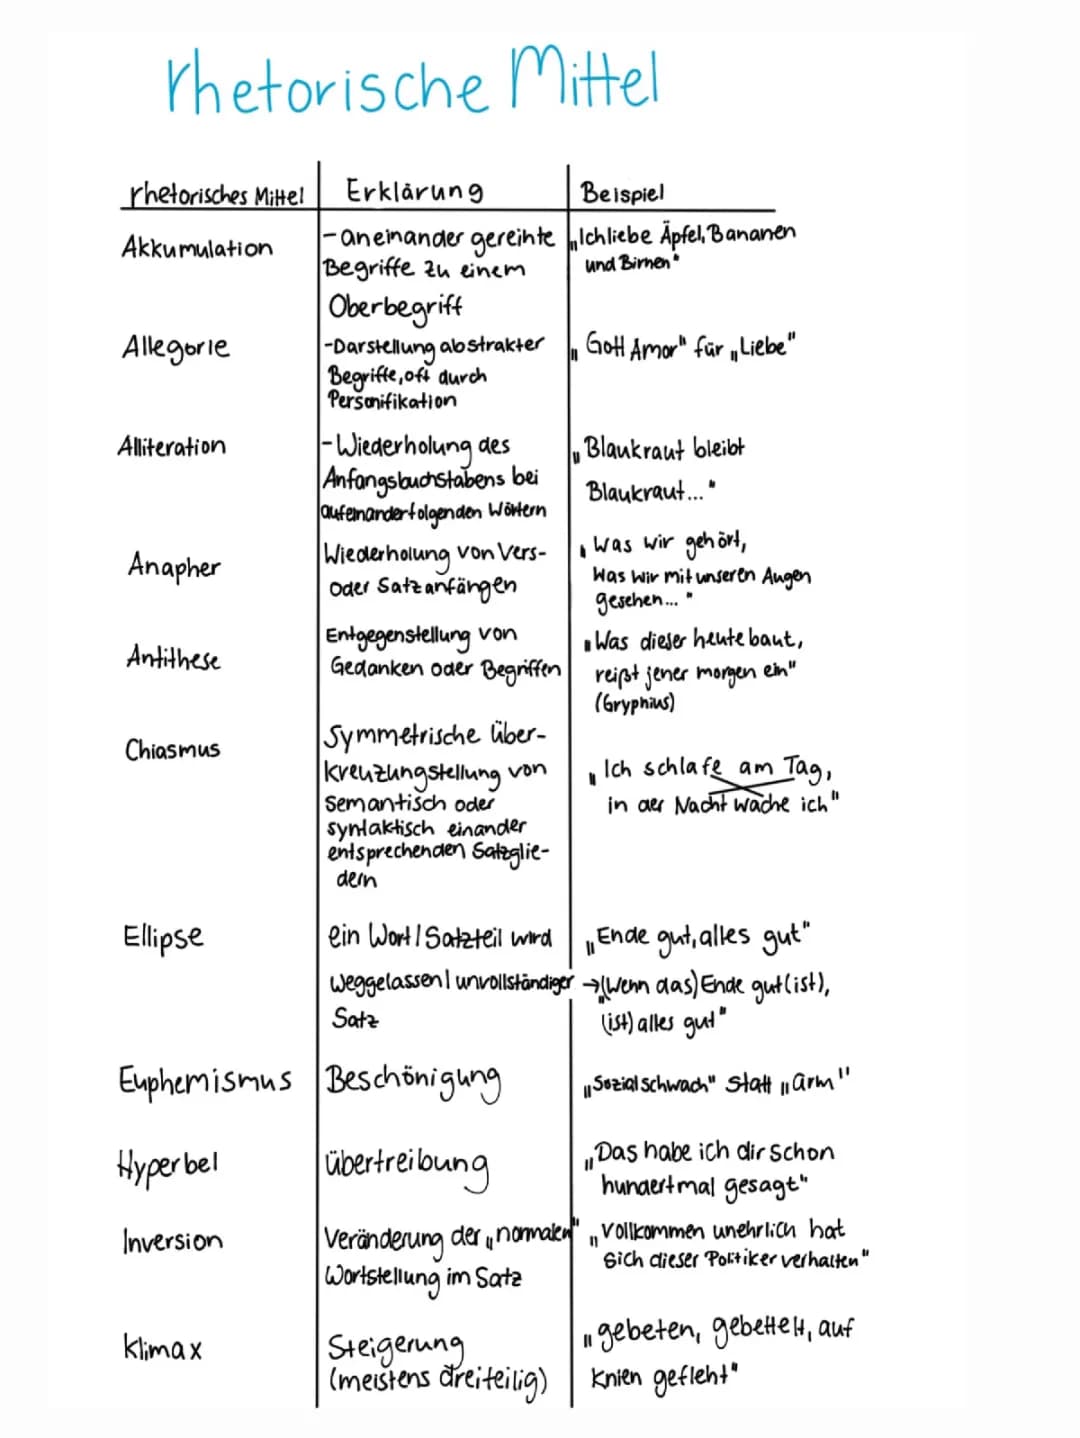 rhetorische Mittel
rhetorisches Mittel
Erklärung
Beispiel
Akkumulation
- aneinander gereihte
Begriffe zu einem
Oberbegriff
„Ich liebe Äpfel, Bananen
und Birnen"
Allegorie
-Darstellung abstrakter
Begriffe, oft durch
Personifikation
„Gott Amor" für „Liebe"
Alliteration
- Wiederholung des
Anfangsbuchstabens bei
aufeinanderfolgenden Wörtern
„Blaukraut bleibt
Blaukraut..."
Anapher
Wiederholung von Vers-
oder Satzanfängen
„Was wir gehört,
Was wir mit unseren Augen
gesehen..."
Antithese
Entgegenstellung von
Gedanken oder Begriffen
„Was dieser heute baut,
reißt jener morgen ein"
(Gryphius)
Chiasmus
Symmetrische Über-
kreuzungstellung von
semantisch oder
syntaktisch einander
entsprechenden Satzglie-
dern
„Ich schlafe am Tag,
in der Nacht wache ich"
Ellipse
ein Wort/Satzteil wird
weggelassen/unvollständiger
Satz
„Ende gut, alles gut"
→„(Wenn das) Ende gut (ist),
(ist) alles gut"
Euphemismus
Beschönigung
„Sozial schwach" statt „arm"
Hyperbel
übertreibung
„Das habe ich dir schon
hundertmal gesagt"
Inversion
Veränderung der „normalen"
Wortstellung im Satz
„Vollkommen unehrlich hat
sich dieser Politiker verhalten"
Klimax
Steigerung
(meistens dreiteilig)
„gebeten, gebettelt, auf
Knien gefleht"